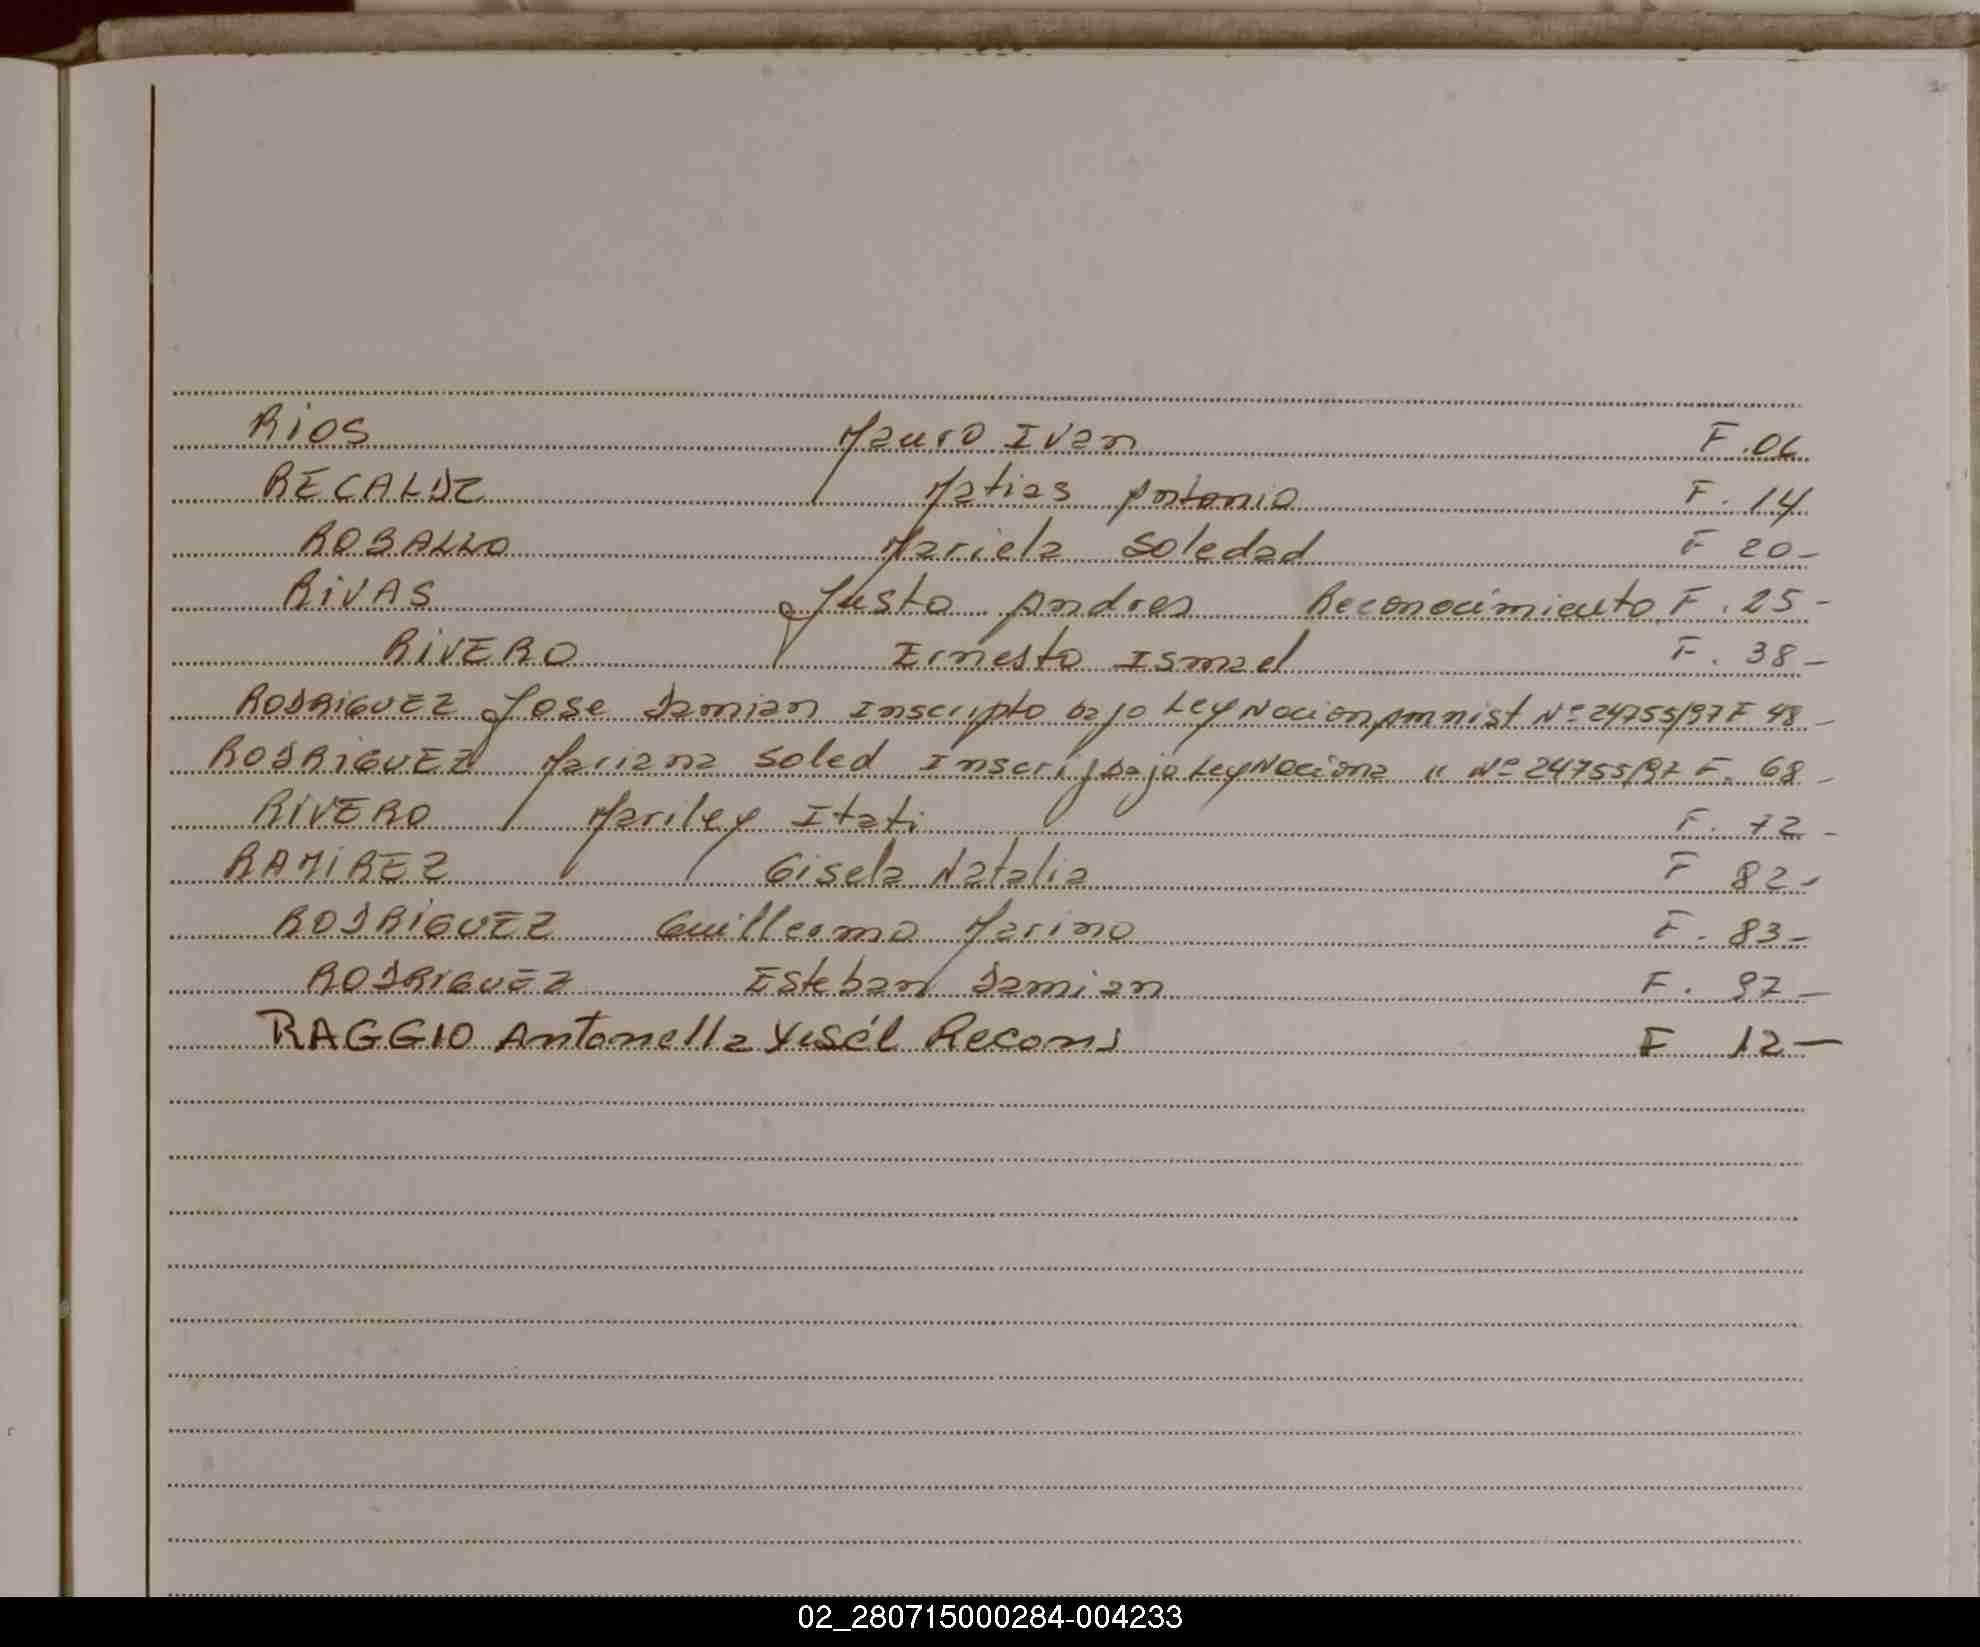 RIOS Mauro Ivan F.06
RECALDE Matias Antonio F. 14
ROBALLO Mariela Soledad F 20-
RIVAS Justo Andres Reconocimiento F. 25-
RIVERO Ernesto Ismael F. 38-
RODRIGUEZ Jose Damian Inscripto bajo Ley Nacion Amnist Nº 24755/97 F 48-
RODRIGUEZ Mariana Soled Inscrip bajo Ley Naciona " Nº 24755/97 F. 68-
RIVERO Mariley Itati F. 72-
RAMIREZ Gisela Natalia F 82-
RODRIGUEZ Guillermo Marino F. 83-
RODRIGUEZ Esteban Damian F. 97-
RAGGIO Antonella Yisél F 12-
02_280715000284-004233